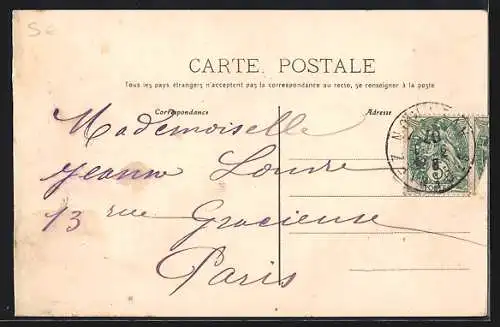 5e
CARTE POSTALE
Tous les pays étrangers n'acceptent pas la correspondance au recto, se renseigner à la poste
Correspondance
Adresse
Mademoiselle
Jeanne
13 rue Gracieuse
Paris